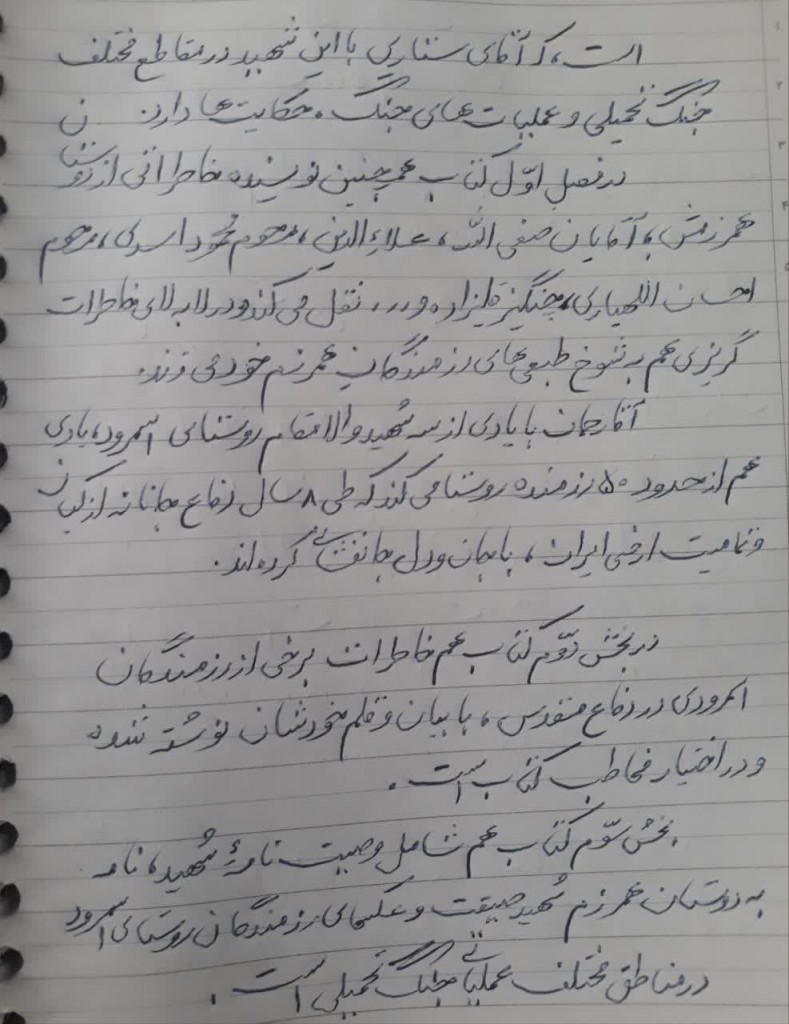 است، که آقای ستاری با این شهید در مقاطع مختلف
جنگ تحمیلی و عملیات‌های جنگ، حکایت‌ها دارد.
در فصل اول کتاب همچنین نویسنده خاطراتی از دوستان
همرزمش، آقایان صفی الله، علاءالدین، مرحوم محمود اسدی، مرحوم
احسان اللهیاری، چنگیز قلیزاده و... نقل می‌کند و در لابه لای خاطرات
گریزی هم به شوخ طبعی‌های رزمندگان همرزم خود می زند.
آقا رحمان با یادی از سه شهید والامقام روستای اسمرود، یادی
هم از حدود ۵۰ رزمنده روستا می کند که طی ۸ سال دفاع جانانه از کیان
و تمامیت ارضی ایران، با جان و دل جانفشانی کرده‌اند.
در بخش دوّم کتاب هم خاطرات برخی از رزمندگان
اسمرودی در دفاع مقدس، با بیان و قلم خودشان نوشته شده
و در اختیار مخاطب کتاب است.
بخش سوّم کتاب هم شامل وصیت نامهٔ شهید، نامه
به دوستان همرزم شهید حقیقت و عکسهای رزمندگان روستای اسمرود
در مناطق مختلف عملیاتی جنگ تحمیلی است.